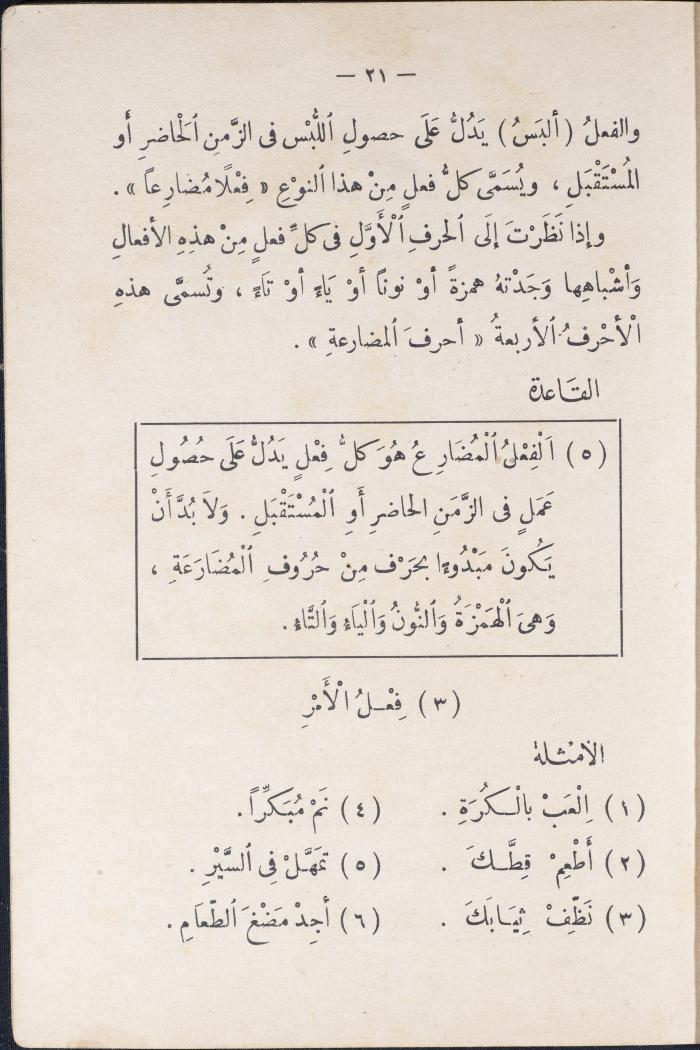 — ٢١ —
والفعلُ (ألبَسُ) يَدُلُّ عَلَى حصولِ ٱللُّبْس فى الزَّمنِ ٱلْحَاضرِ أَو
المُسْتَقْبَلِ ، ويُسَمَّى كلُّ فعلٍ مِنْ هذا ٱلنوْعِ « فِعْلًا مُضَارِعاً » .
وإذا نَظَرْتَ إلَى ٱلحرفِ ٱلْأَوَّلِ فى كلِّ فعلٍ مِنْ هذهِ الأفعالِ
وَأشْباهِها وَجَدْتهُ همزةً أوْ نونًا أوْ يَاءً أوْ تَاءً ، وتُسمَّى هذهِ
ٱلْأحْرفُ ٱلأربعةُ « أحرفَ ٱلمضارعةِ » .
القَاعدة
(٥) اَلْفِعْلُ ٱلْمُضَارِعُ هُوَ كلُّ فِعْلٍ يَدُلُّ عَلَى حُصُولِ
عَمَلٍ فى الزَّمَنِ الحاضرِ أَوِ ٱلْمُسْتَقْبَلِ . وَلاَ بُدَّ أَنْ
يَكُونَ مَبْدُوءًا بحَرْفٍ مِنْ حُرُوفِ ٱلْمُضَارَعَةِ ،
وَهىَ ٱلْهَمْزَةُ وَالنُّونُ وَٱلْيَاءُ وَٱلتَّاءُ .
(٣) فِعْلُ الْأَمْرِ
الأمْثلة
(١) اِلْعَبْ بالْكُرَةِ . (٤) نَمْ مُبَكِّرًا .
(٢) أَطْعِمْ قِطَّكَ . (٥) تمَهَّلْ فِى ٱلسَّيْرِ .
(٣) نَظِّفْ ثِيَابَكَ . (٦) أجِدْ مَضْغَ ٱلطّعَامِ .